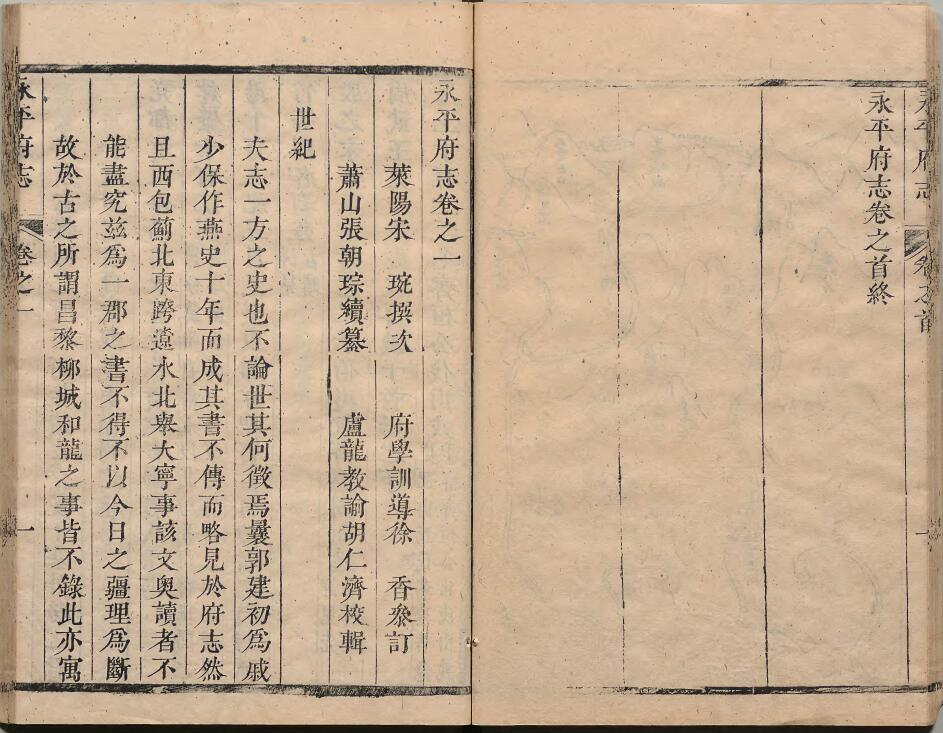 永平府志 卷之首
永平府志卷之首終
永平府志卷之一
萊陽宋 琬撰次 府學訓導徐 香參訂
蕭山張朝琮續纂 盧龍教諭胡仁濟校輯
世紀
夫志一方之史也不論世其何徵焉曩郭建初爲戚
少保作燕史十年而成其書不傳而略見於府志然
且西包薊北東跨遼水北舉大寧事該文奧讀者不
能盡究兹爲一郡之書不得不以今日之疆理爲斷
故於古之所謂昌黎柳城和龍之事皆不錄此亦寓
永平府志 卷之一 一